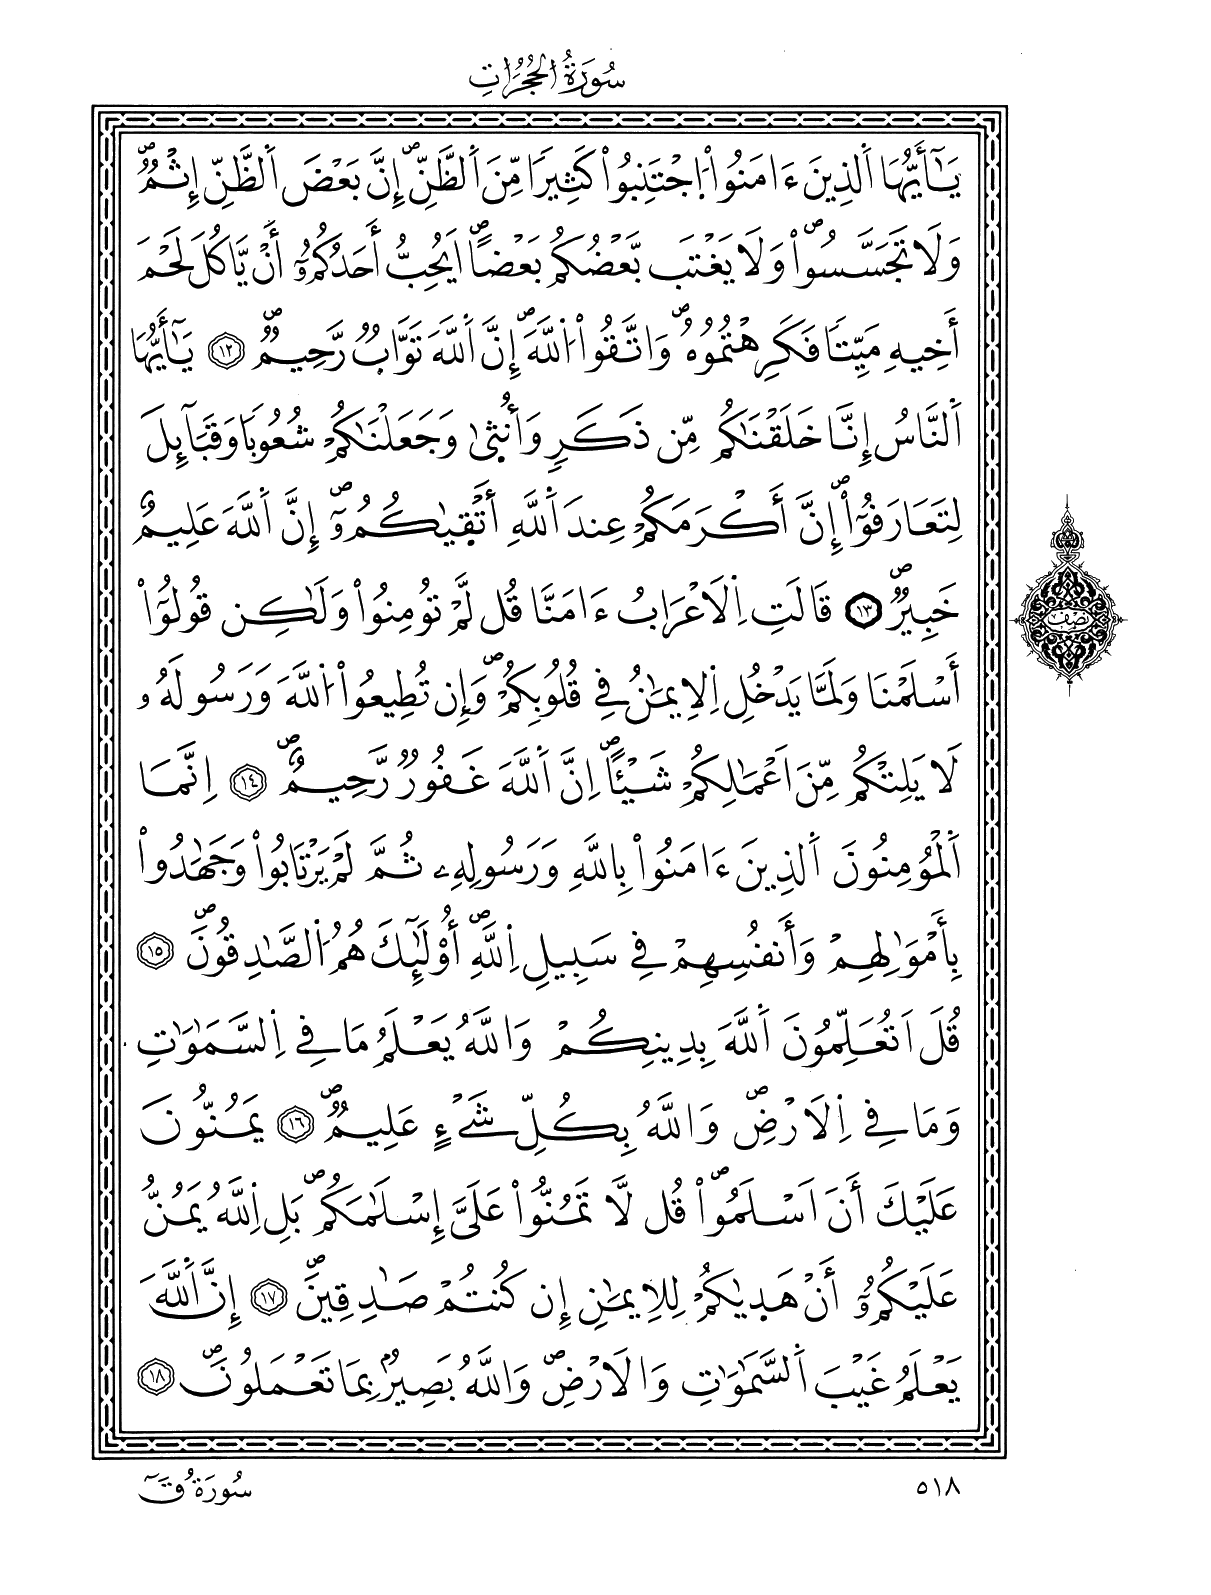 سُورَةُ الحُجُرَاتِ
يَٰٓأَيُّهَا اَ۬لذِينَ ءَامَنُواْ اُ۪جْتَنِبُواْ كَثِيراٗ مِّنَ اَ۬لظَّنِّۖ إِنَّ بَعْضَ اَ۬لظَّنِّ إِثْمٞۖ
وَلَا تَجَسَّسُواْۖ وَلَا يَغْتَب بَّعْضُكُم بَعْضاًۖ اَيُحِبُّ أَحَدُكُمُۥٓ أَنْ يَّاكُلَ لَحْمَ
أَخِيهِ مَيِّتاٗ فَكَرِهْتُمُوهُۖ وَاتَّقُواْ اُ۬للَّهَۖ إِنَّ اَ۬للَّهَ تَوَّابٞ رَّحِيمٞۖ ١٢ يَٰٓأَيُّهَا
اَ۬لنَّاسُ إِنَّا خَلَقْنَٰكُم مِّن ذَكَرٖ وَأُنثۭيٰ وَجَعَلْنَٰكُمْ شُعُوباٗ وَقَبَآئِلَ
لِتَعَارَفُوٓاْۖ إِنَّ أَكْرَمَكُمْ عِندَ اَ۬للَّهِ أَتْقۭيٰكُمُۥٓۖ إِنَّ اَ۬للَّهَ عَلِيمٌ
خَبِيرٞۖ ١٣ قَالَتِ اِ۬لَاعْرَابُ ءَامَنَّا قُل لَّمْ تُومِنُواْ وَلَٰكِن قُولُوٓاْ
أَسْلَمْنَا وَلَمَّا يَدْخُلِ اِ۬لِايمَٰنُ فِے قُلُوبِكُمْۖ وَإِن تُطِيعُواْ اُ۬للَّهَ وَرَسُولَهُۥ
لَا يَلِتْكُم مِّنَ اَعْمَٰلِكُمْ شَيْـٔاًۖ اِنَّ اَ۬للَّهَ غَفُورٞ رَّحِيمٌۖ ١٤ اِنَّمَا
اَ۬لْمُومِنُونَ اَ۬لذِينَ ءَامَنُواْ بِاللَّهِ وَرَسُولِهِۦ ثُمَّ لَمْ يَرْتَابُواْ وَجَٰهَدُواْ
بِأَمْوَٰلِهِمْ وَأَنفُسِهِمْ فِے سَبِيلِ اِ۬للَّهِۖ أُوْلَٰٓئِكَ هُمُ اُ۬لصَّٰدِقُونَۖ ١٥
قُلَ اَتُعَلِّمُونَ اَ۬للَّهَ بِدِينِكُمْ وَاللَّهُ يَعْلَمُ مَا فِے اِ۬لسَّمَٰوَٰتِ
وَمَا فِے اِ۬لَارْضِۖ وَاللَّهُ بِكُلِّ شَےْءٍ عَلِيمٞۖ ١٦ يَمُنُّونَ
عَلَيْكَ أَنَ اَسْلَمُواْۖ قُل لَّا تَمُنُّواْ عَلَيَّ إِسْلَٰمَكُمۖ بَلِ اِ۬للَّهُ يَمُنُّ
عَلَيْكُمُۥٓ أَنْ هَدۭيٰكُمْ لِلِايمَٰنِ إِن كُنتُمْ صَٰدِقِينَۖ ١٧ إِنَّ اَ۬للَّهَ
يَعْلَمُ غَيْبَ اَ۬لسَّمَٰوَٰتِ وَالَارْضِۖ وَاللَّهُ بَصِيرُۢ بِمَا تَعْمَلُونَۖ ١٨
نصف
سُورَةُ قٓ
٥١٨